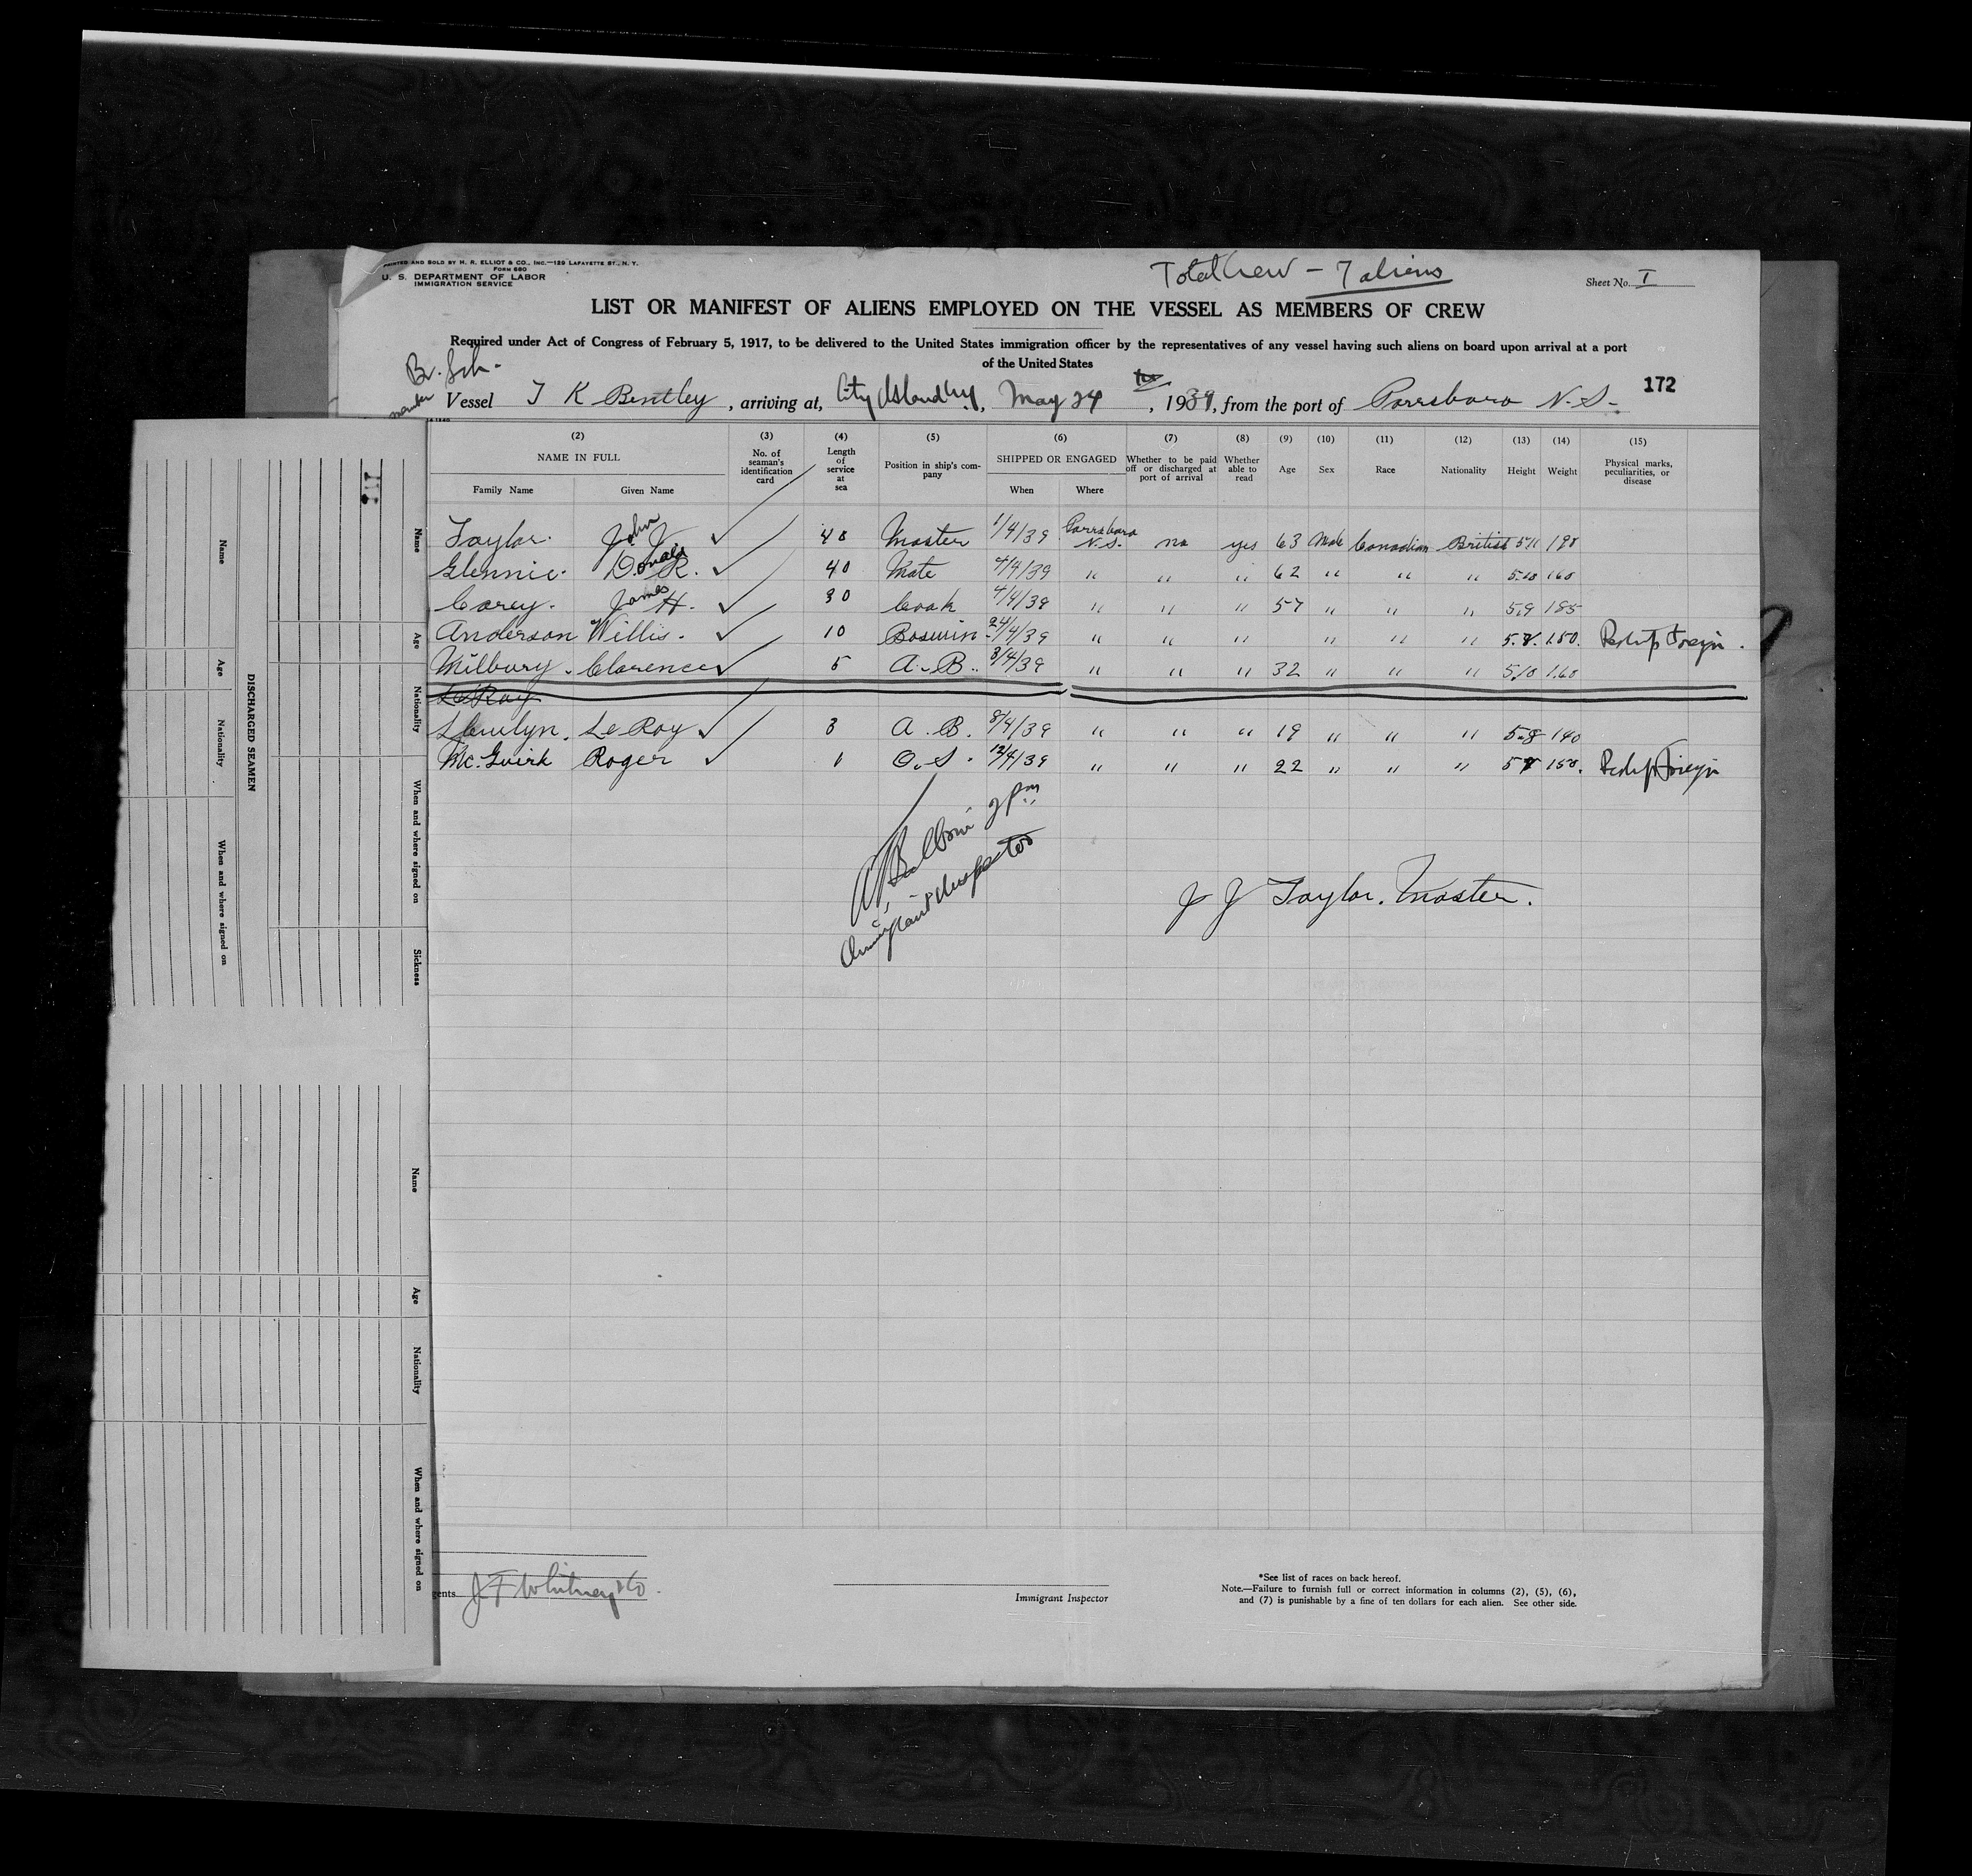 PRINTED AND SOLD BY H. R. ELLIOT & CO., INC.—129 LAFAYETTE ST., N. Y.
FORM 680
U. S. DEPARTMENT OF LABOR
IMMIGRATION SERVICE
Total Crew - 7 aliens
Sheet No. I
LIST OR MANIFEST OF ALIENS EMPLOYED ON THE VESSEL AS MEMBERS OF CREW
Required under Act of Congress of February 5, 1917, to be delivered to the United States immigration officer by the representatives of any vessel having such aliens on board upon arrival at a port
of the United States
Br. Sch.
172
Vessel T K Bentley, arriving at, City Island NY, May 24, 1939, from the port of Parrsboro N.S.
(2) (3) (4) (5) (6) (7) (8) (9) (10) (11) (12) (13) (14) (15)
NAME IN FULL
Family Name Given Name
No. of seaman's identification card
Length of service at sea
Position in ship's company
SHIPPED OR ENGAGED
When Where
Whether to be paid off or discharged at port of arrival
Whether able to read
Age Sex Race Nationality Height Weight
Physical marks, peculiarities, or disease
Taylor. John J. ✓ 48 Master 1/4/39 Parrsboro N.S. no yes 63 Male Canadian British 5 11 198
Glennie. Donald R. ✓ 40 Mate 4/4/39 " " " 62 " " " 5.10 160
Corey. James H. ✓ 30 Cook 4/4/39 " " " 57 " " " 5.9 185
Anderson Willis. ✓ 10 Boswin 24/4/39 " " " " " " 5.8. 150.
Milbury. Clarence ✓ 5 A. B. 3/4/39 " " " 32 " " " 5.10 160
LeRoy
Llewlyn. LeRoy ✓ 3 A. B. 8/4/39 " " " 19 " " " 5-8 140
Mc.Guirk Roger ✓ 1 O. S. 12/4/39 " " " 22 " " " 5 8 150.
2 pm
Immigrant Inspector
J J Taylor. Master.
DISCHARGED SEAMEN
Name
Age
Nationality
When and where signed on
Name
Age
Nationality
When and where signed on
Sickness
Name
Age
Nationality
When and where signed on
gents J. F Whitney & Co.
Immigrant Inspector
*See list of races on back hereof.
Note.—Failure to furnish full or correct information in columns (2), (5), (6),
and (7) is punishable by a fine of ten dollars for each alien. See other side.